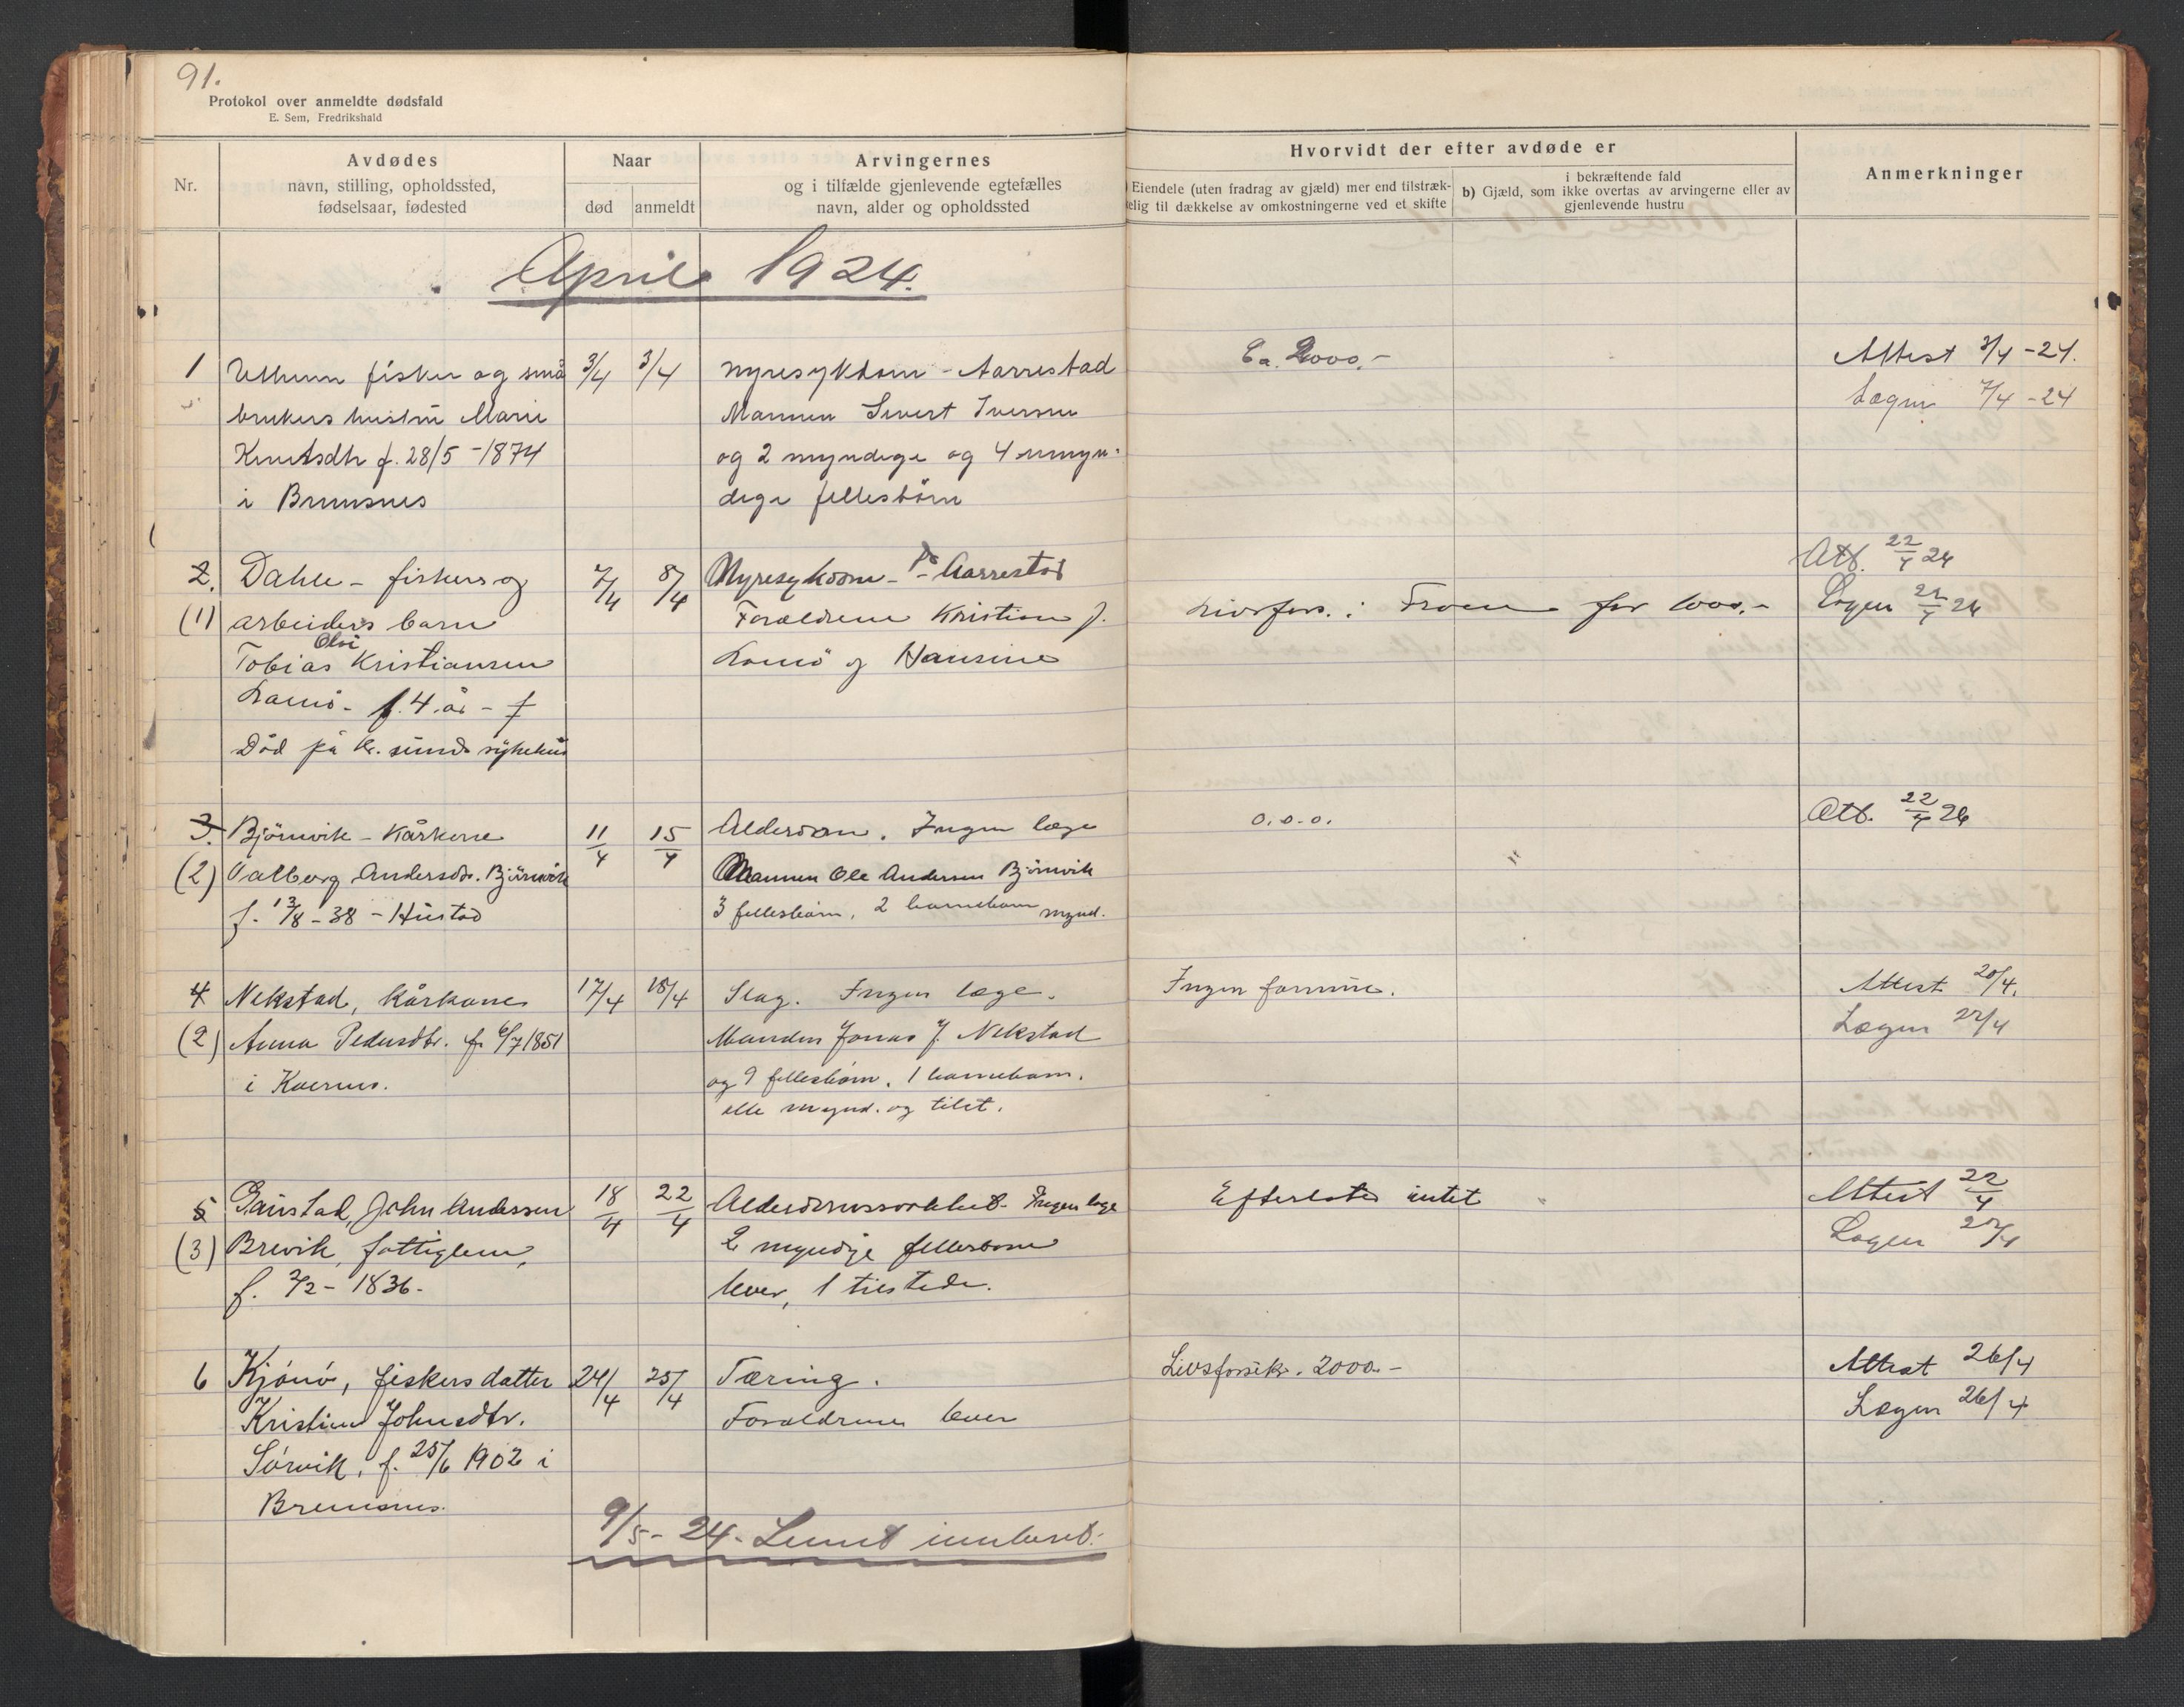 91.
Protokol over anmeldte dødsfald
E. Sem, Fredrikshald
Nr.
Avdødes
navn, stilling, opholdssted,
fødselsaar, fødested
Naar
død
anmeldt
Arvingernes
og i tilfælde gjenlevende egtefælles
navn, alder og opholdssted
Hvorvidt der efter avdøde er
Eiendele (uten fradrag av gjæld) mer end tilstræk-
elig til dækkelse av omkostningerne ved et skifte
i bekræftende fald
b) Gjæld, som ikke overtas av arvingerne eller av
gjenlevende hustru
Anmerkninger
April 1924.
1
fisker og små
brukers hustru Marie
Knutsdtr f. 28/5 -1874
i Bremsnes
3/4
3/4
Nyresykdom - Aarrestad
Mannen Sivert Iversen
og 2 myndige og 4 umyn-
dige fellesbörn
Ca. 2000.-
Attest 3/4 -24.
Lægen 7/4 -24
2.
(1)
Dahle - fiskers og
arbeiders barn
Olai
Tobias Kristiansen
- f. 4 år - f
Död på Kr. sunds sykehus
7/4
8/4
Nyresykdom - Aarrestad
Foreldrene Kristian J.
og Hansine
Livsfors. i for 1000.-
Att. 22/4 24
Lægen 22/4 24
3.
(2)
Björnvik - Kårkone
Valborg Andersdtr. Björnvik
f. 13/8 - 38 - Hustad
11/4
15/4
Alderdom. Ingen læge
Mannen Ole Andersen Björnvik
3 fellesbörn, 2 barnebarn mynd.
0.0.0.
Att. 22/4 24
4
(2)
Nekstad, Kårkone
Anna Pedersdtr. f. 6/7 1851
i Kvernes.
17/4
18/4
Slag. Ingen læge.
Manden Jonas J. Nekstad
og 9 fellesbörn. 1 barnebarn.
alle mynd. og tilst.
Ingen formue.
Attest 20/4.
Lægen 22/4
5
(3)
Gaustad, John Andersen
Brevik, fattiglem,
f. 2/2 - 1836.
18/4
22/4
Alderdomssvakhet - Ingen læge
2 myndige fellesbörn
lever, 1 tilstede.
Efterlater intet
Attest 22/4
Lægen
6
Kjönö, fiskers datter
Kristine Johnsdtr.
Sörvik, f. 25/6 1902 i
Bremsnes.
24/4
25/4
Tæring.
Foreldrene lever
Livsforsikr. 2000.-
Attest 26/4
Lægen 26/4
9/5 - 24 - innberet.